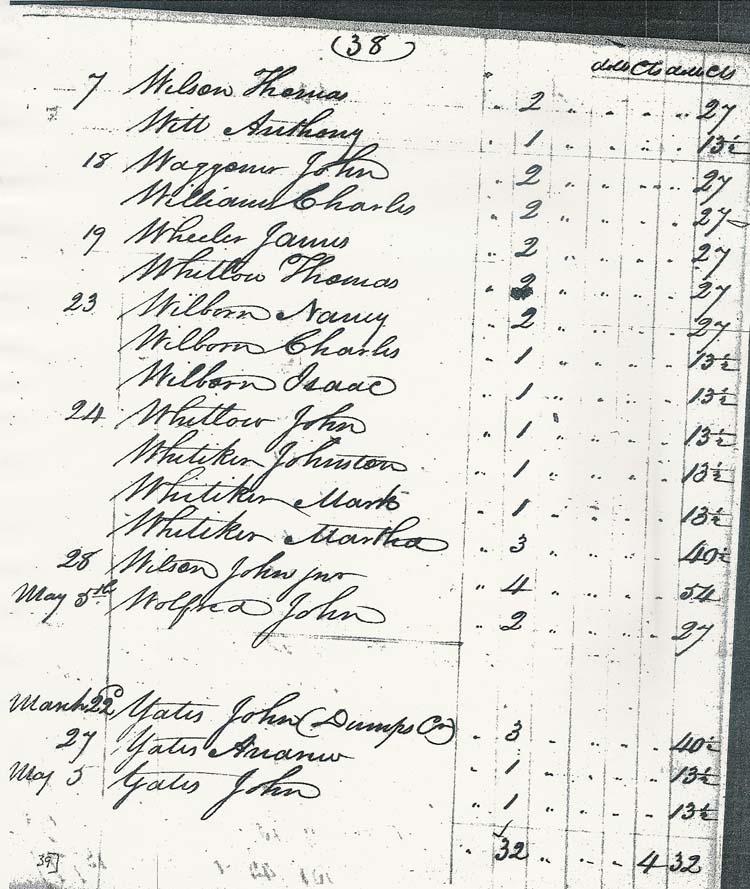 (38)
dols Cts dols Cts
7 Wilson Thomas " 2 " " " " 27
Witt Anthony " 1 " " " " 13½
18 Waggoner John " 2 " " " " 27
Williams Charles " 2 " " " " 27
19 Wheeler James " 2 " " " " 27
Whitlow Thomas " 2 " " " " 27
23 Wilborn Nancy " 2 " " " " 27
Wilborn Charles " 1 " " " " 13½
Wilborn Isaac " 1 " " " " 13½
24 Whitlow John " 1 " " " " 13½
Whitiker Johnston " 1 " " " " 13½
Whitiker Mark " 1 " " " " 13½
Whitiker Martha " 3 " " " " 40½
28 Wilson John jnr " 4 " " " " 54
May 5th Wolfred John " 2 " " " " 27
March 22 Yates John (Dumps Cr) " 3 " " " " 40½
27 Yates " 1 " " " " 13½
May 5 Yates John " 1 " " " " 13½
" 32 " " " 4 32
39]